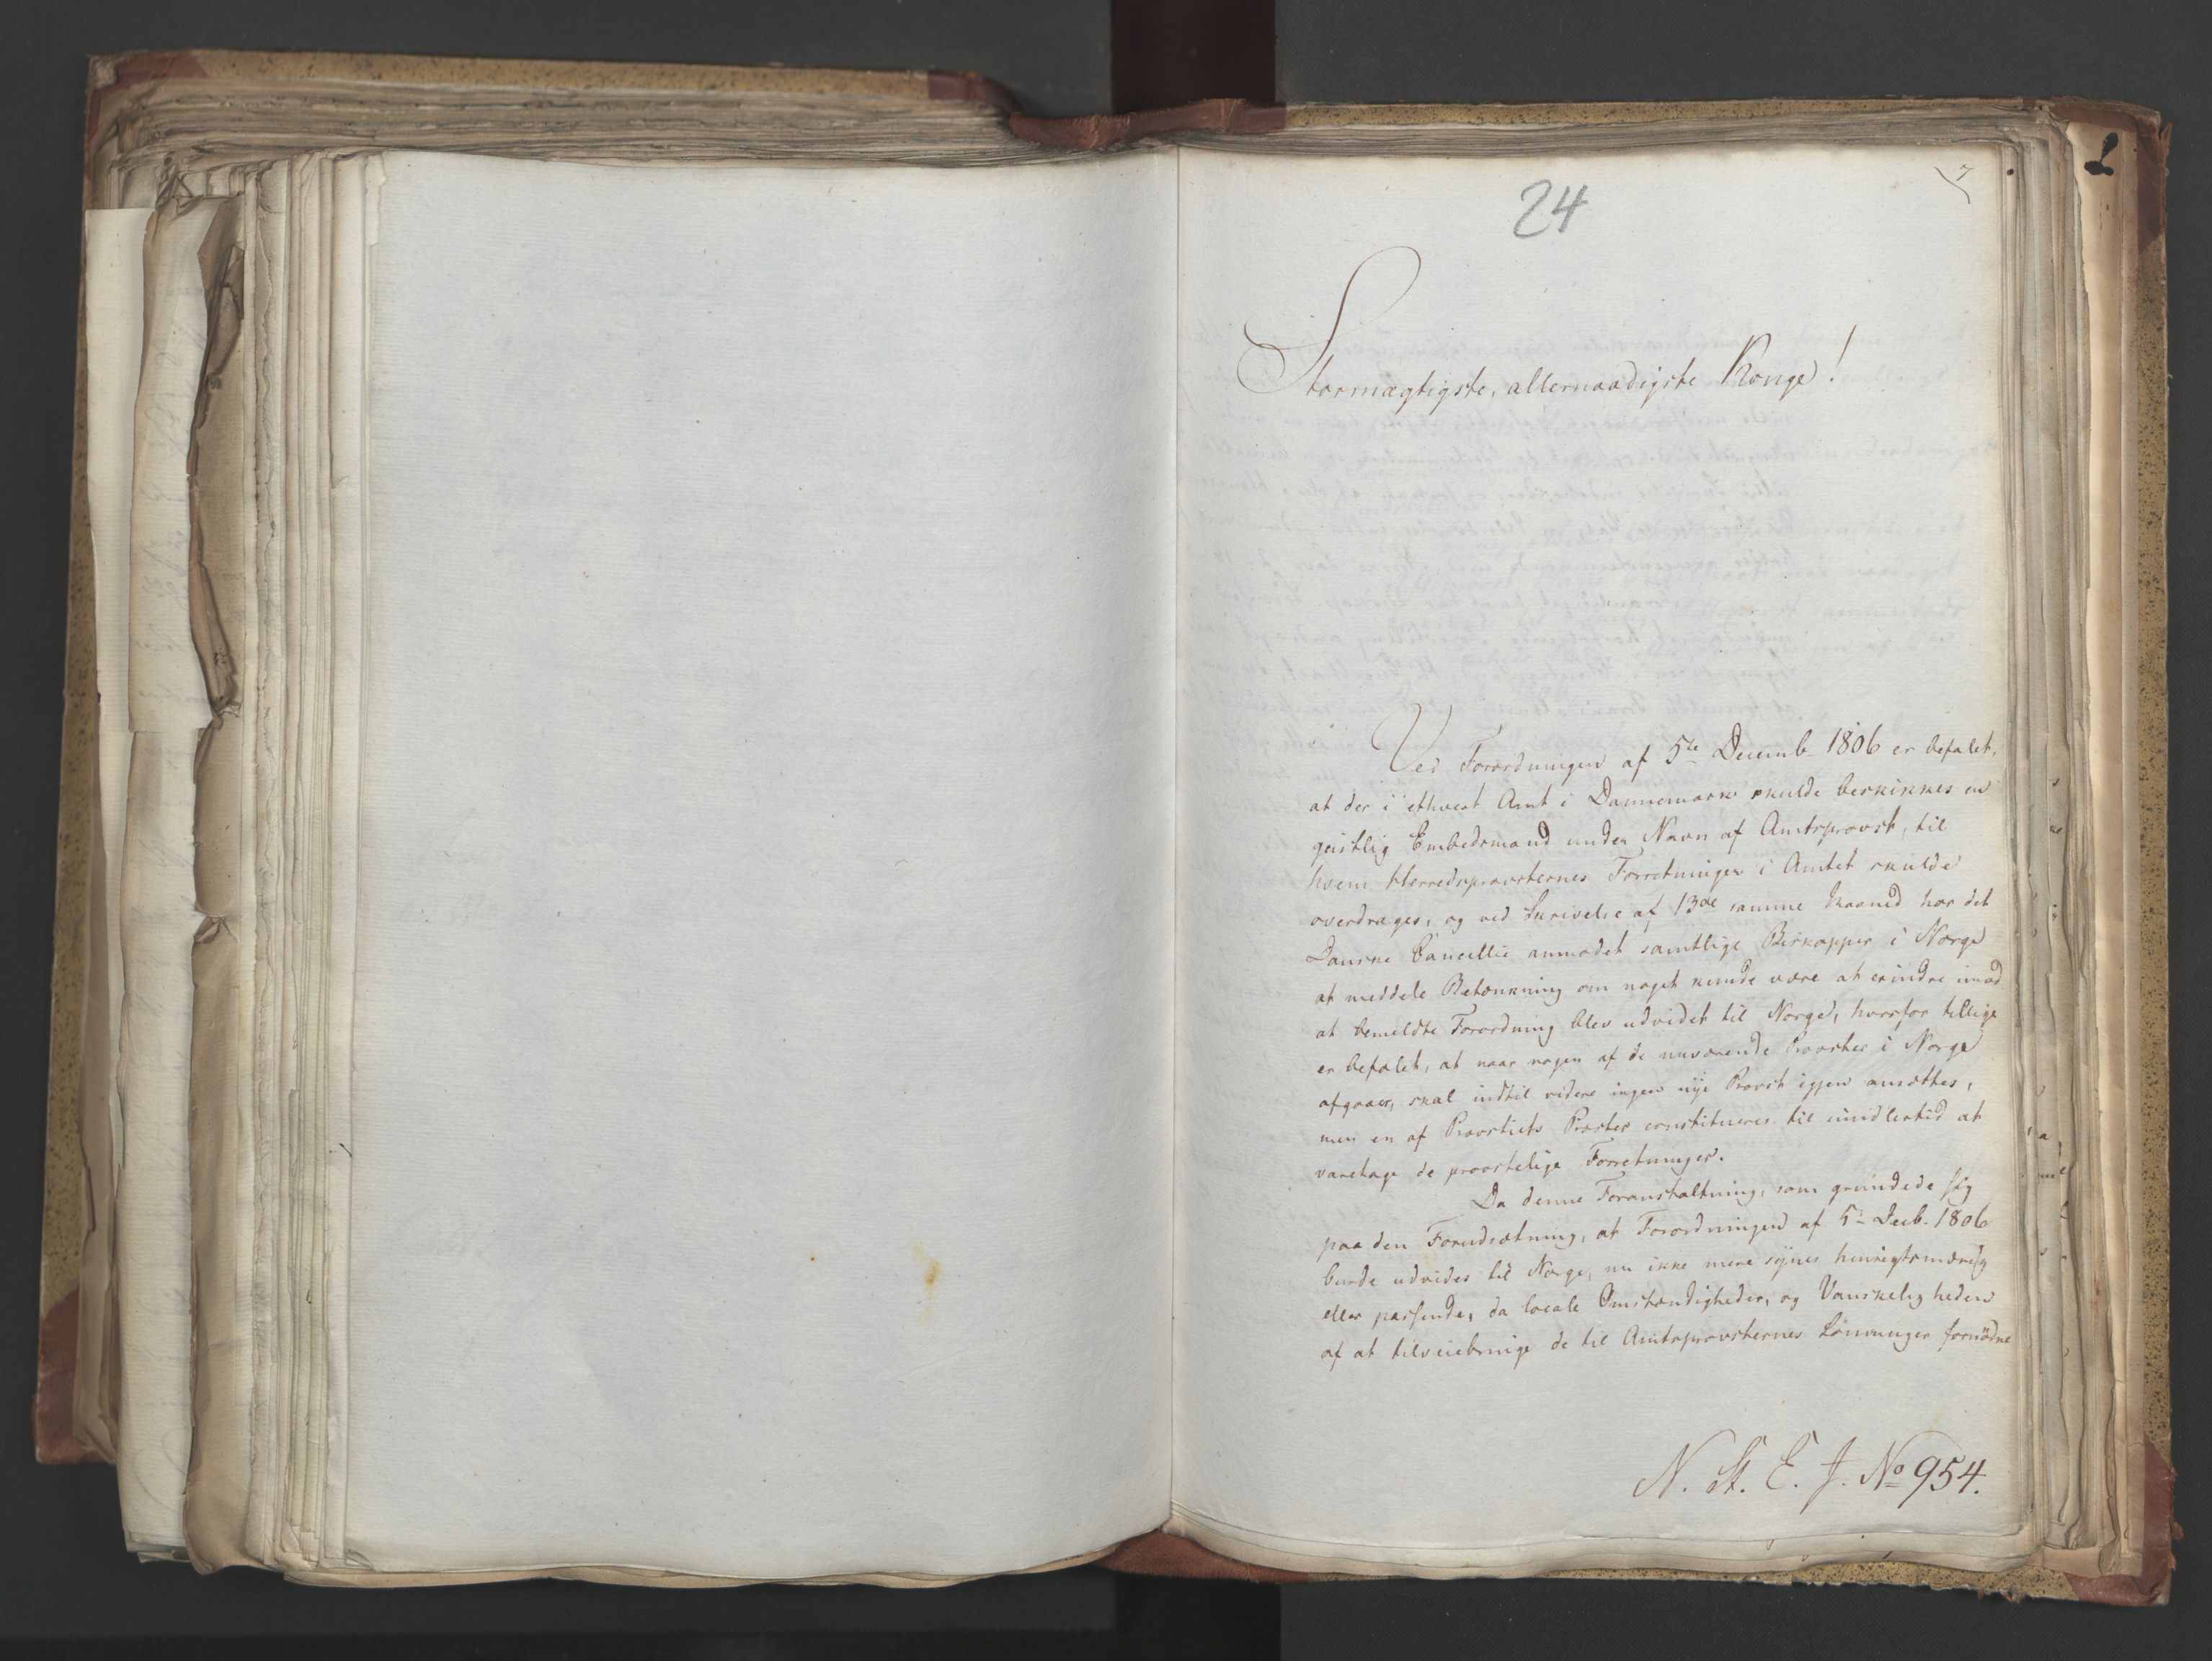 7
24
Stormægtigste, allernaadigste Konge!
Ved Forordningen af 5te Decemb. 1806 er befalet,
at der i ethvert Amt i Dannemark skulde beskikkes en
geistlig Embedsmand under Navn af Amtsprovst, til
hvem Herredsprovsternes Forretninger i Amtet skulde
overdrages, og ved Skrivelse af 13de samme Maaned har det
Danske Cancellie anmodet samtlige Biskopper i Norge
at meddele Betænkning om noget kunde være at erindre imod
at bemeldte Forordning blev udvidet til Norge, hvorfor tillige
er befalet, at naar nogen af de nuværende Provster i Norge
afgaaer, skal indtil videre ingen nye Provst igjen ansættes,
men en af Provstiets Præster constitueres til imidlertid at
varetage de provstelige Forretninger.
Da denne Foranstaltning, som grundede sig
paa den Forudsætning, at Forordningen af 5te Decb. 1806
burde udvides til Norge, nu ikke mere synes hensigtsmæssig
eller passende, da locale Omstændigheder, og Vanskeligheden
af at tilveiebringe de til Amtsprovsternes Lønninger fornødne
N. St. E. J. No 954.